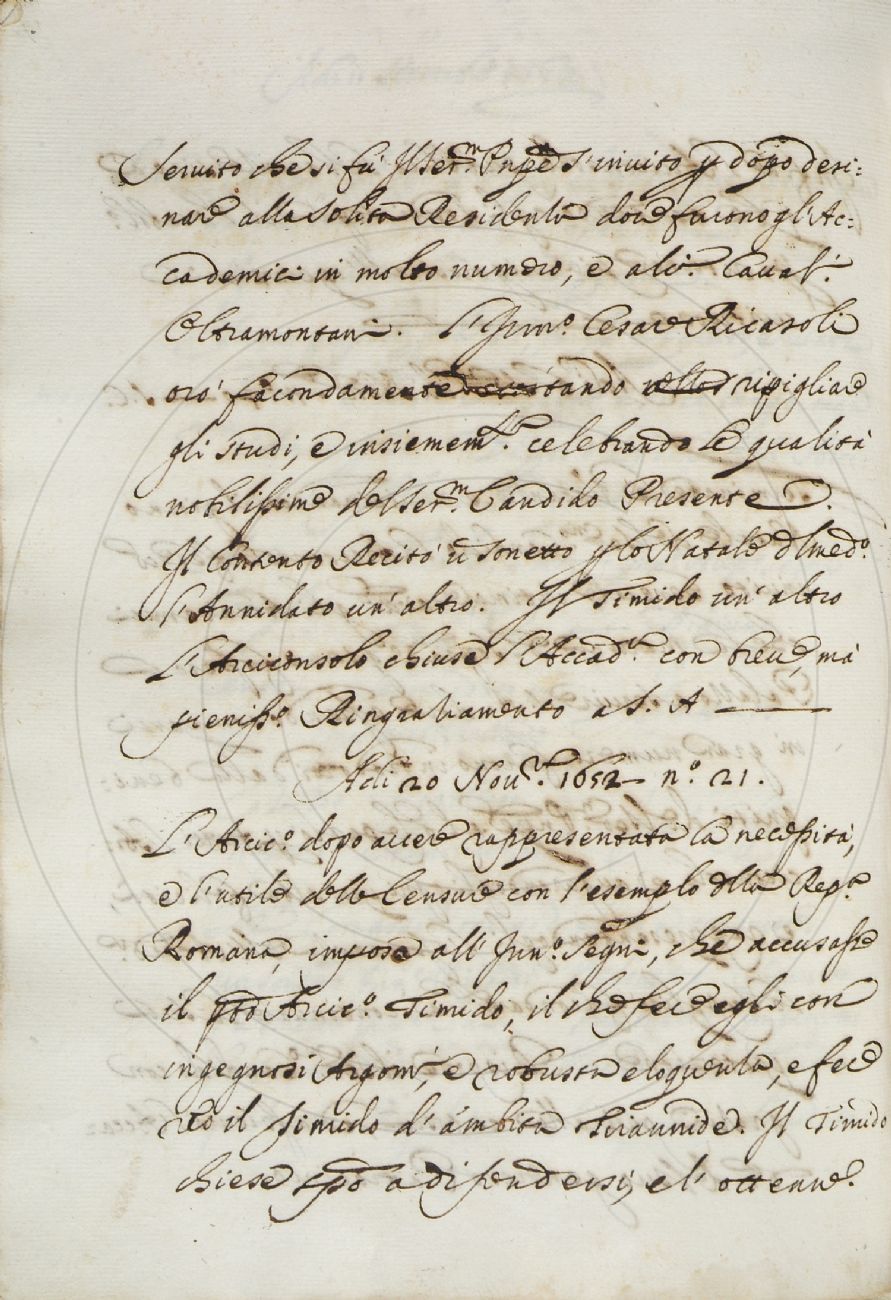 Seruito che si fù Il Ser.m Pnpe s'inuitò p dopo desi=
nare alla solita Residenza doue furono gli Ac=
cademici in molto numero, e alcr. Caual.
Oltramontani. L'Inno. Cesare Ricasoli
orò facondamente tando ripigliare
gli studi, e insiemem.te celebrando le qualità
nobilissime del Ser.m Candido Presente.
Il Contento Recitò u sonetto p lo Natale d lmed.o
l'Annidato un'altro. Il Timido un'altro
L'Arciconsolo chiuse l'Accad.a con breue, mà
pieniss.o Ringraziamento a S. A
Adi 20 Nou.re 1652 n.o 21.
L'Arcic.o dopo auere rappresentata la necessità,
e l'utile delle Censure con l'esempio dlla Rep.a
Romana, impose all'Inn.o Segni, che accusasse
il pdto Arcic.o Timido, il che fece egli con
ingegnosi Argom.ti, e robusta eloquenza, e fece
reo il Timido d'ambita Tirannide. Il Timido
chiese tpo a difendersi, e l'ottenne.